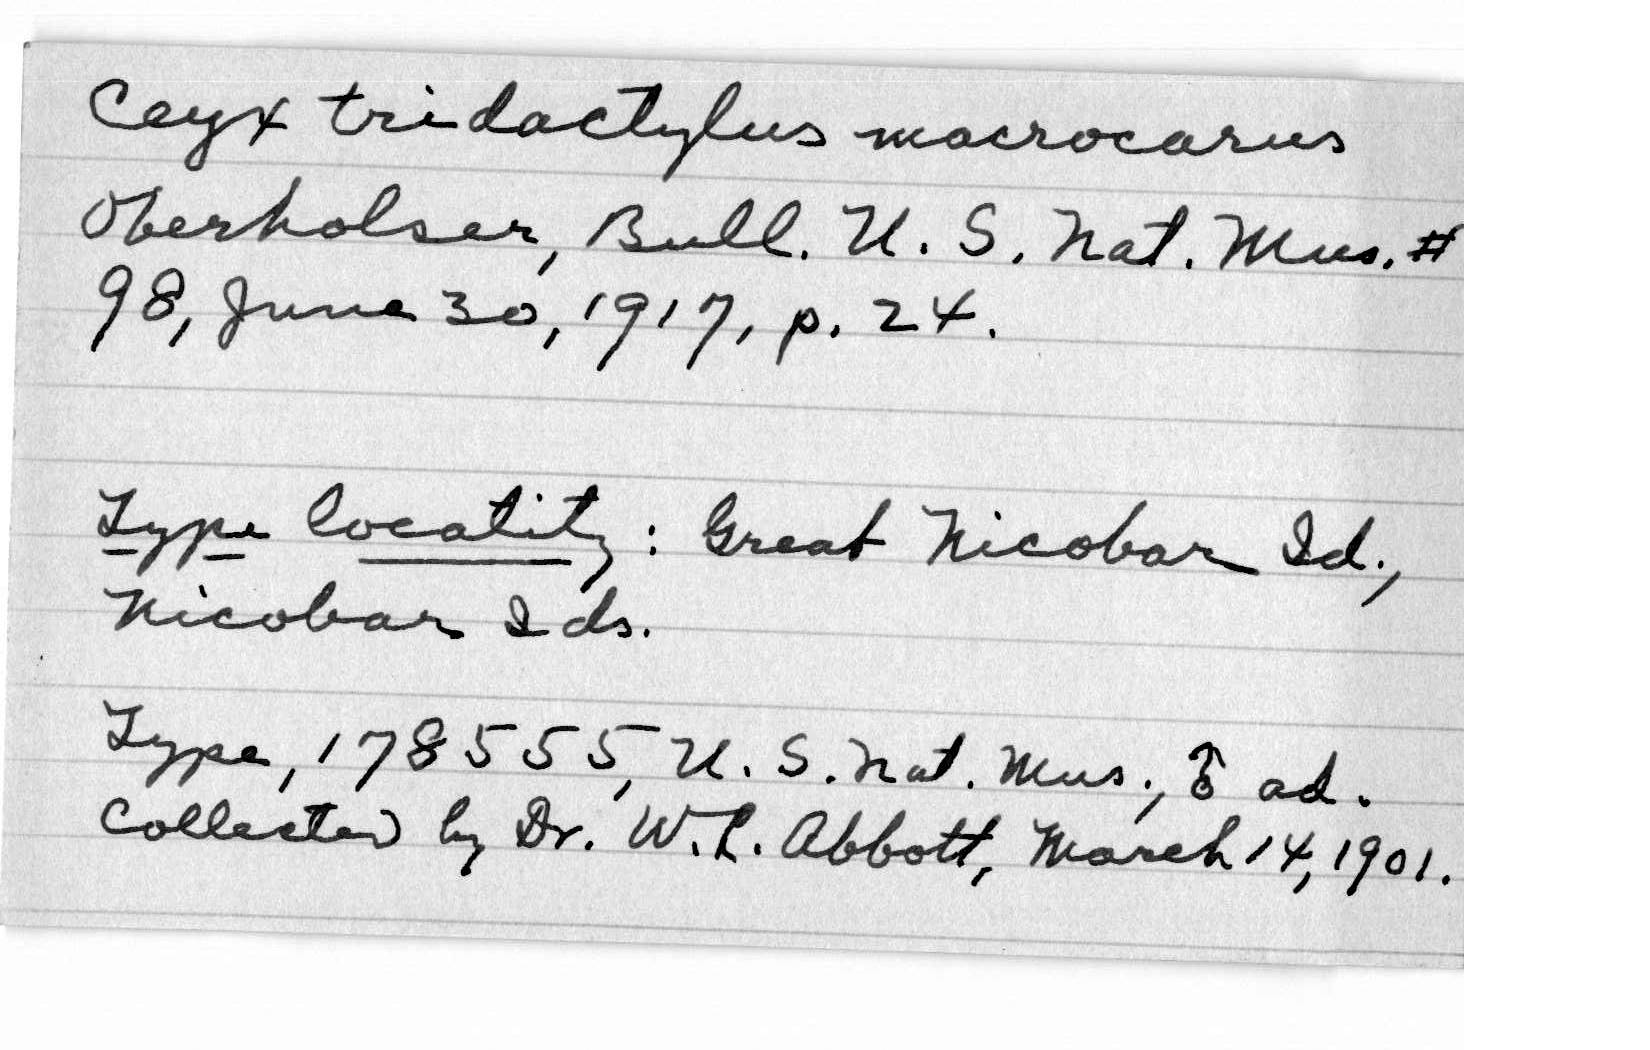 Ceyx tridactylus macrocarus
Oberholser, Bull. U. S. Nat. Mus. #
98, June 30, 1917, p. 24.
Type locality: Great Nicobar Id.,
Nicobar Ids.
Type, 178555, U. S. Nat. Mus., ♂ ad.
Collected by Dr. W. L. Abbott, March 14, 1901.